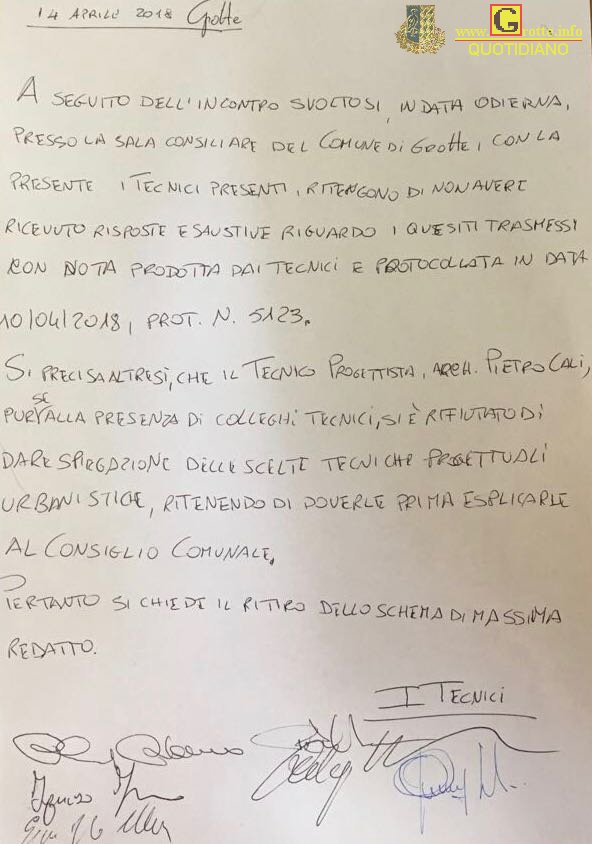 14 APRILE 2018 Grotte
www.Grotte.info
QUOTIDIANO
A SEGUITO DELL'INCONTRO SVOLTOSI, IN DATA ODIERNA,
PRESSO LA SALA CONSILIARE DEL COMUNE DI GROTTE, CON LA
PRESENTE I TECNICI PRESENTI, RITENGONO DI NON AVERE
RICEVUTO RISPOSTE ESAUSTIVE RIGUARDO I QUESITI TRASMESSI
CON NOTA PRODOTTA DAI TECNICI E PROTOCOLLATA IN DATA
10/04/2018, PROT. N. 5123.
SI PRECISA ALTRESÌ, CHE IL TECNICO PROGETTISTA, ARCH. PIETRO CALI,
PUR SE ALLA PRESENZA DI COLLEGHI TECNICI, SI È RIFIUTATO DI
DARE SPIEGAZIONE DELLE SCELTE TECNICHE PROGETTUALI
URBANISTICHE, RITENENDO DI DOVERLE PRIMA ESPLICARLE
AL CONSIGLIO COMUNALE.
PERTANTO SI CHIEDE IL RITIRO DELLO SCHEMA DI MASSIMA
REDATTO.
I TECNICI